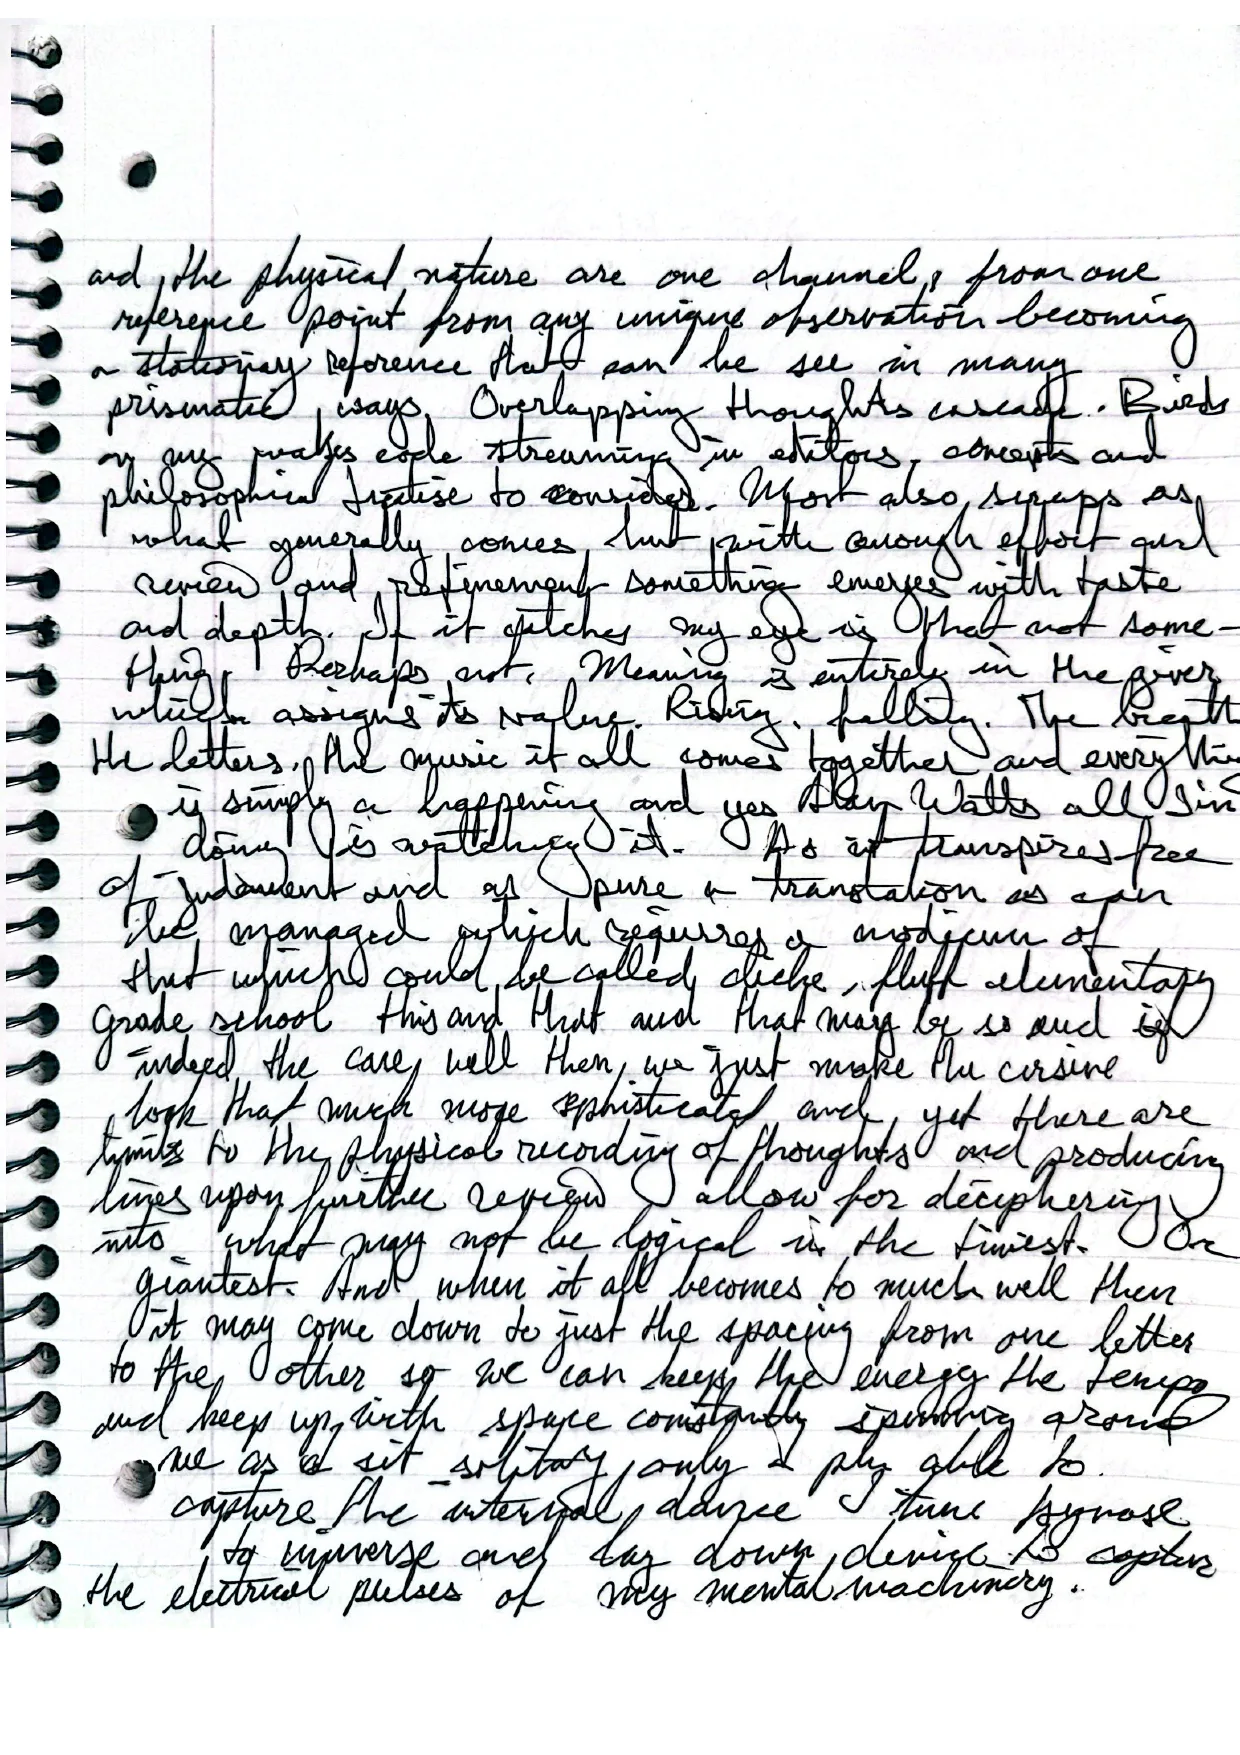 and the physical nature are one channel, from one
reference point from any unique observation becoming
a stationary reference that can be see in many
prismatic ways. Overlapping thoughts cascade. Birds
on my walks code streaming in editors, concepts and
philosophical treatise to consider. Most also scraps as
what generally comes, but with enough effort and
review and refinement something emerges with taste
and depth. If it catches my eye is that not some-
thing. Perhaps not. Meaning is entirely in the giver
which assigns its value. Rising, falling. The breath
the letters, the music it all comes together and everything
is simply a happening and yes Alan Watts all I'm
doing is watching it. As it transpires free
of judgment and as pure a translation as can
be managed which requires a modicum of
that which could be called cliche, fluff elementary
grade school this and that and that may be so and if
indeed the care, well then, we just make the cursive
look that much more sophisticated and, yet there are
limits to the physical recording of thoughts and producing
lines upon further review allow for deciphering
into what may not be logical in the tiniest. Or
giantest. And when it all becomes to much well then
it may come down to just the spacing from one letter
to the other so we can keep the energy the tempo
and keep up with space constantly spinning around
me as a sit solitary only a able to
capture the internal dance tune
to and lay down device to capture
the electrical pulses of my mental machinery.